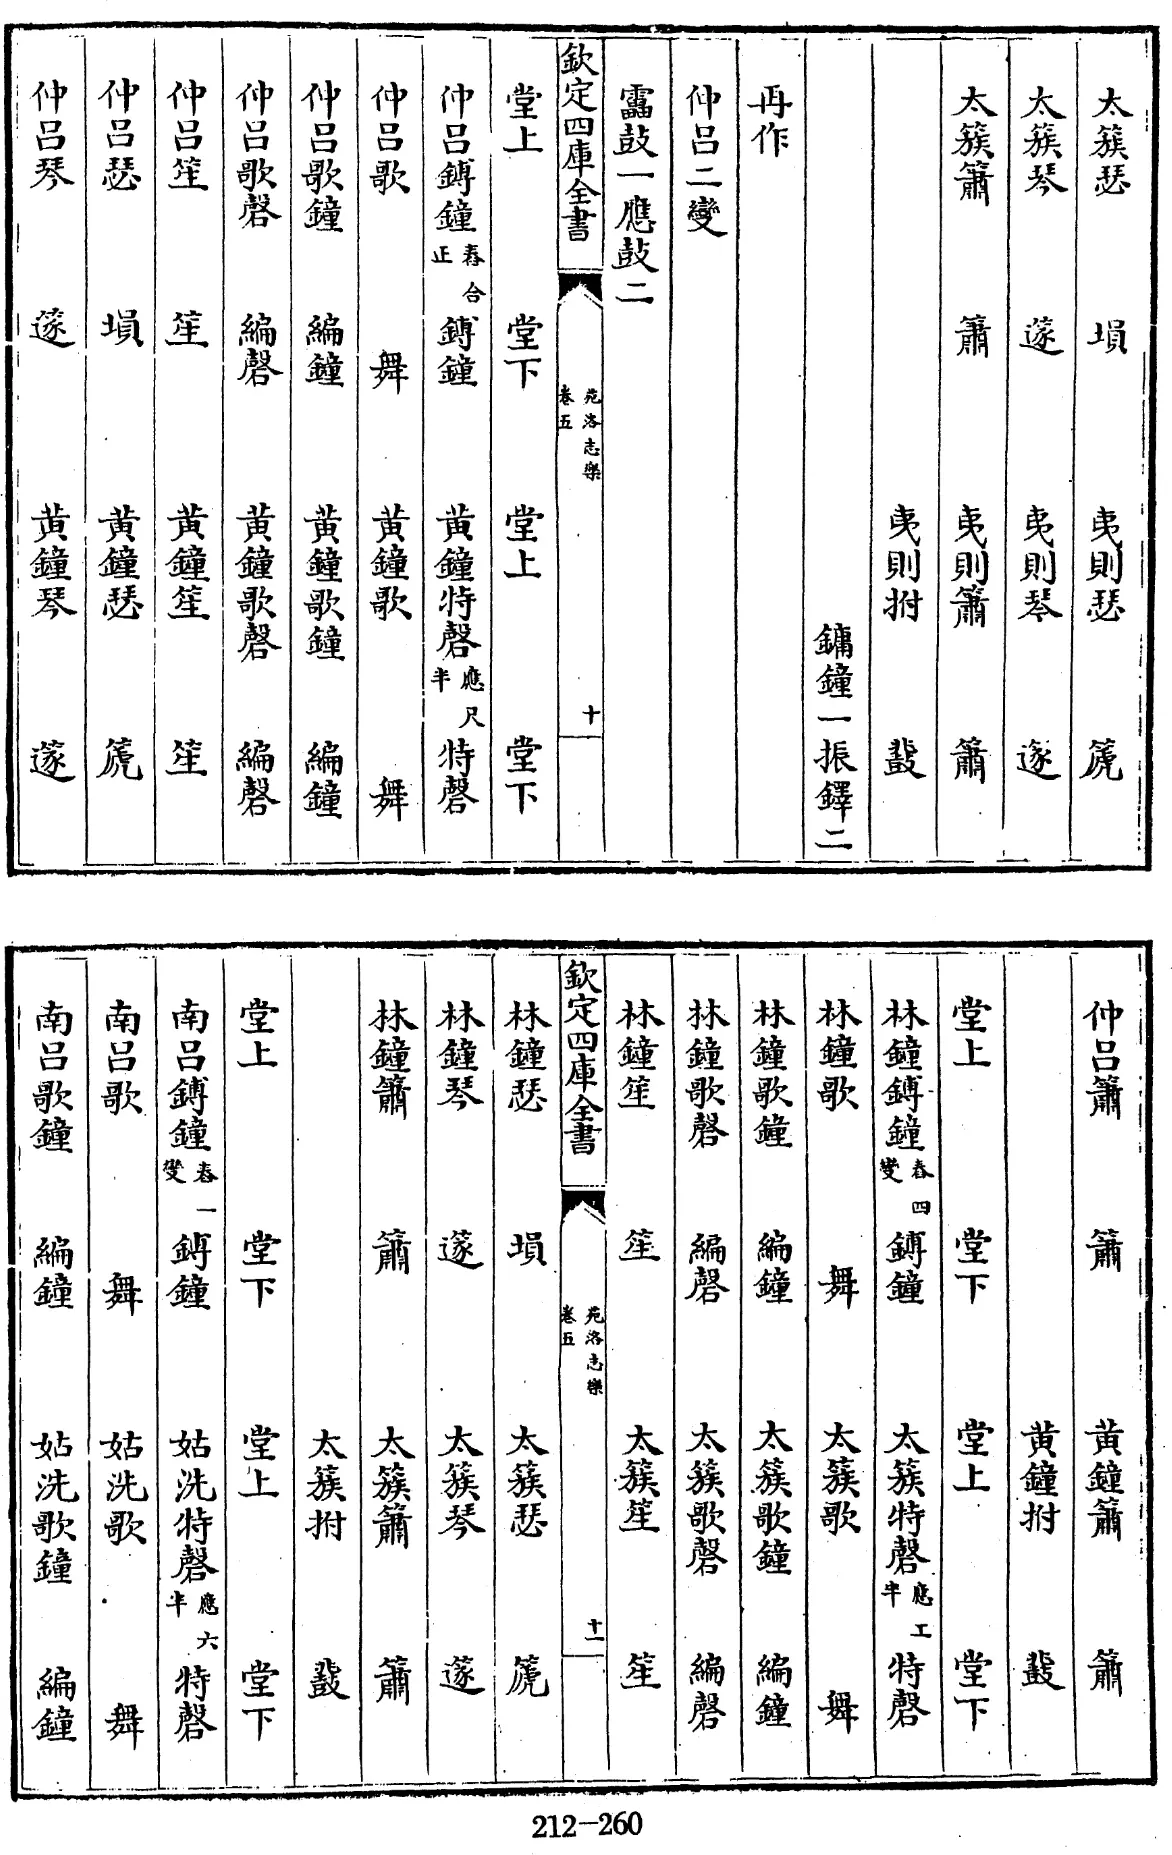 太簇瑟 塤 夷則瑟 篪
太簇琴 篴 夷則琴 篴
太簇簫 簫 夷則簫 簫
夷則拊 鼗
鏞鐘一振鐸二
再作
仲呂二變
靁鼓一應鼓二
欽定四庫全書 苑洛志樂 卷五 十
堂上 堂下 堂上 堂下
仲呂鎛鐘 春合正 鎛鐘 黃鐘特磬 應尺半 特磬
仲呂歌 舞 黃鐘歌 舞
仲呂歌鐘 編鐘 黃鐘歌鐘 編鐘
仲呂歌磬 編磬 黃鐘歌磬 編磬
仲呂笙 笙 黃鐘笙 笙
仲呂瑟 塤 黃鐘瑟 篪
仲呂琴 篴 黃鐘琴 篴
仲呂簫 簫 黃鐘簫 簫
黃鐘拊 鼗
堂上 堂下 堂上 堂下
林鐘鎛鐘 春四變 鎛鐘 太簇特磬 應工半 特磬
林鐘歌 舞 太簇歌 舞
林鐘歌鐘 編鐘 太簇歌鐘 編鐘
林鐘歌磬 編磬 太簇歌磬 編磬
林鐘笙 笙 太簇笙 笙
欽定四庫全書 苑洛志樂 卷五 十一
林鐘瑟 塤 太簇瑟 篪
林鐘琴 篴 太簇琴 篴
林鐘簫 簫 太簇簫 簫
太簇拊 鼗
堂上 堂下 堂上 堂下
南呂鎛鐘 春一變 鎛鐘 姑洗特磬 應六半 特磬
南呂歌 舞 姑洗歌 舞
南呂歌鐘 編鐘 姑洗歌鐘 編鐘
212-260